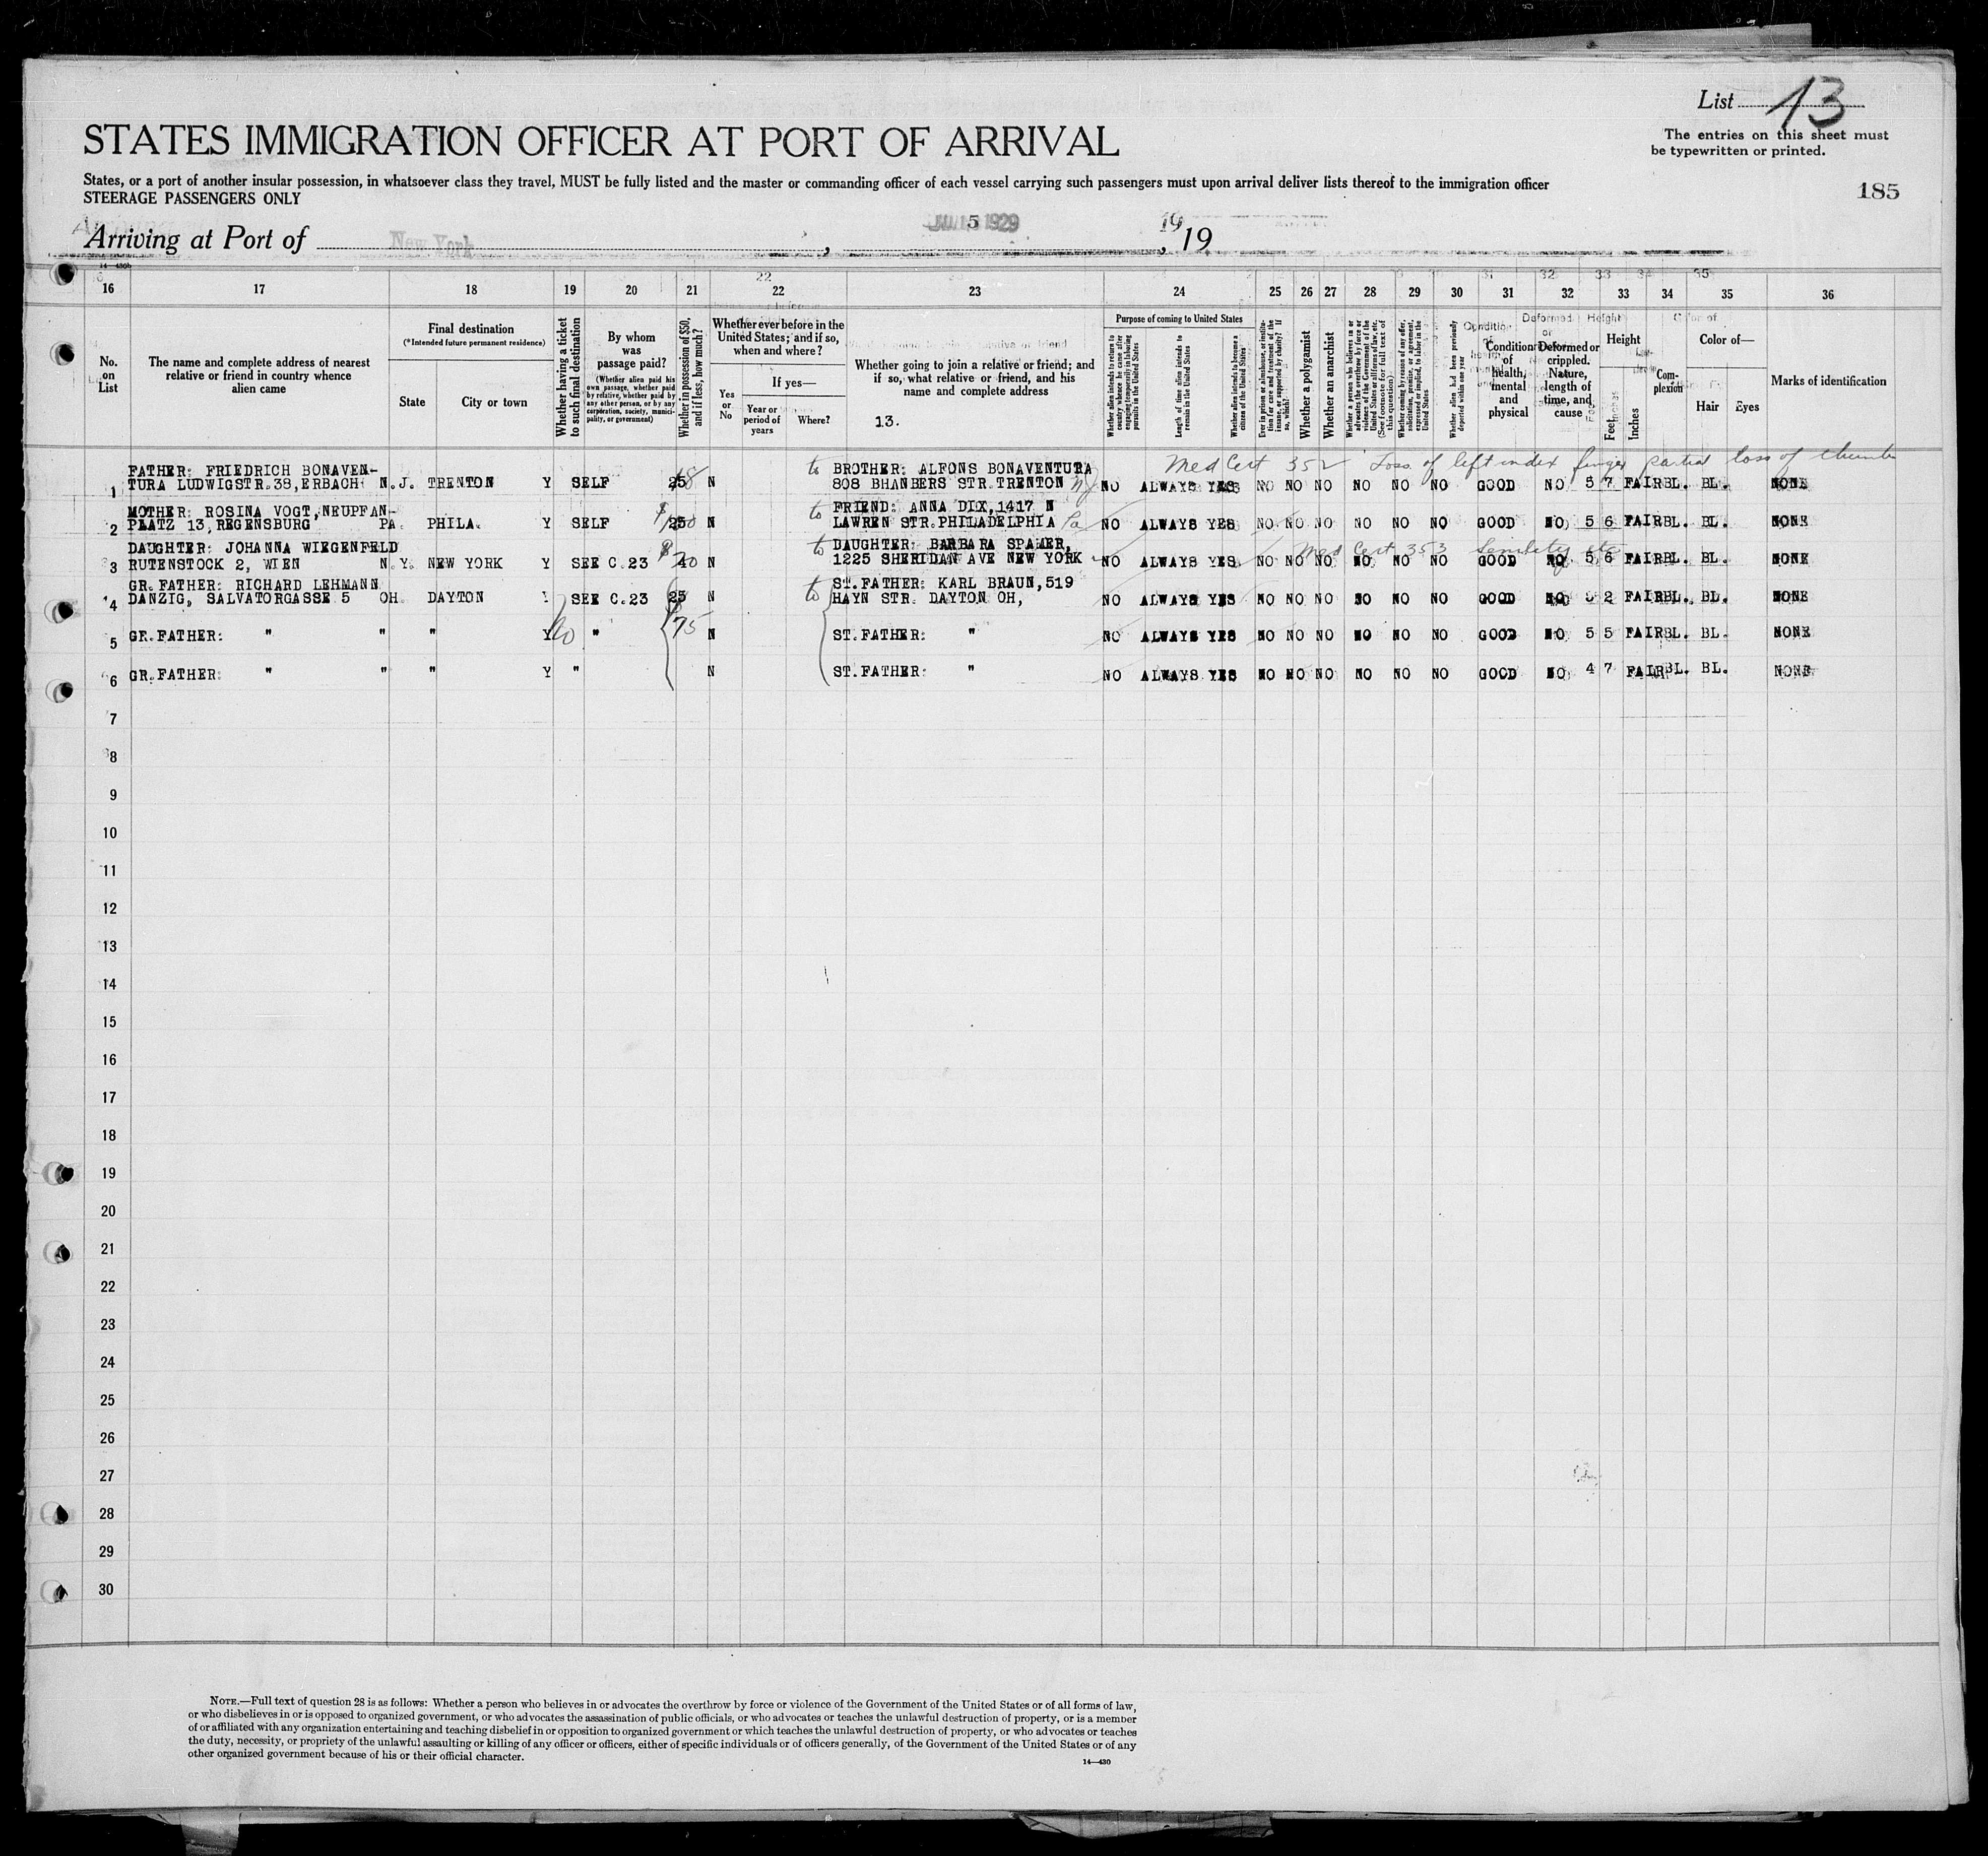 List 13
The entries on this sheet must
be typewritten or printed.
STATES IMMIGRATION OFFICER AT PORT OF ARRIVAL
States, or a port of another insular possession, in whatsoever class they travel, MUST be fully listed and the master or commanding officer of each vessel carrying such passengers must upon arrival deliver lists thereof to the immigration officer
STEERAGE PASSENGERS ONLY
185
Arriving at Port of New York, 5 1929, 19
14—430b
16 17 18 19 20 21 22 23 24 25 26 27 28 29 30 31 32 33 34 35 36
No. on List
The name and complete address of nearest relative or friend in country whence alien came
Final destination
(*Intended future permanent residence)
State
City or town
Whether having a ticket to such final destination
By whom was passage paid?
(Whether alien paid his own passage, whether paid by relative, whether paid by any other person, or by any corporation, society, municipality, or government)
Whether in possession of $50, and if less, how much?
Whether ever before in the United States; and if so, when and where?
Yes or No
If yes—
Year or period of years
Where?
Whether going to join a relative or friend; and if so, what relative or friend, and his name and complete address
13.
Purpose of coming to United States
Whether alien intends to return to country whence he came after engaging temporarily in laboring pursuits in the United States
Length of time alien intends to remain in the United States
Whether alien intends to become a citizen of the United States
Ever in prison or almshouse, or institution for care and treatment of the insane, or supported by charity? If so, which?
Whether a polygamist
Whether an anarchist
Whether a person who believes in or advocates the overthrow by force or violence of the Government of the United States or all forms of law, etc. (See footnote for full text of this question)
Whether coming by reason of any offer, solicitation, promise, or agreement, expressed or implied, to labor in the United States
Whether alien had been previously deported within one year
Condition of health, mental and physical
Deformed or crippled. Nature, length of time, and cause
Height
Feet
Inches
Complexion
Color of—
Hair
Eyes
Marks of identification
Med Cert 352 Loss of left index finger partial loss of thumb
FATHER: FRIEDRICH BONAVEN- to BROTHER: ALFONS BONAVENTURA
1 TURA LUDWIGSTR.38, ERBACH N.J. TRENTON Y SELF 25 N 808 BHANBERS STR. TRENTON NJ NO ALWAYS YES NO NO NO NO NO NO GOOD NO 5 7 FAIR BL. BL. NONE
MOTHER: ROSINA VOGT, NEUPFAN- to FRIEND: ANNA DIX, 1417 N
2 PLATZ 13, REGENSBURG PA. PHILA. Y SELF 250 N LAWREN STR. PHILADELPHIA Pa NO ALWAYS YES NO NO NO NO NO NO GOOD NO 5 6 FAIR BL. BL. NONE
DAUGHTER: JOHANNA WIEGENFELD to DAUGHTER: BARBARA SPAMER, Med Cert 353 Senility etc
3 RUTENSTOCK 2, WIEN N.Y. NEW YORK Y SEE C.23 $ N 1225 SHERIDAN AVE NEW YORK NO ALWAYS YES NO NO NO NO NO NO GOOD NO 5 6 FAIR BL. BL. NONE
GR.FATHER: RICHARD LEHMANN to ST.FATHER: KARL BRAUN, 519
4 DANZIG, SALVATORGASSE 5 OH. DAYTON Y SEE C.23 25 N HAYN STR. DAYTON OH, NO ALWAYS YES NO NO NO NO NO NO GOOD NO 5 2 FAIR BL. BL. NONE
5 GR.FATHER: " " " Y " 75 N ST.FATHER: " NO ALWAYS YES NO NO NO NO NO NO GOOD NO 5 5 FAIR BL. BL. NONE
6 GR.FATHER: " " " Y " N ST.FATHER: " NO ALWAYS YES NO NO NO NO NO NO GOOD NO 4 7 FAIR BL. BL. NONE
7
8
9
10
11
12
13
14
15
16
17
18
19
20
21
22
23
24
25
26
27
28
29
30
NOTE.—Full text of question 28 is as follows: Whether a person who believes in or advocates the overthrow by force or violence of the Government of the United States or of all forms of law,
or who disbelieves in or is opposed to organized government, or who advocates the assassination of public officials, or who advocates or teaches the unlawful destruction of property, or is a member
of or affiliated with any organization entertaining and teaching disbelief in or opposition to organized government or which teaches the unlawful destruction of property, or who advocates or teaches
the duty, necessity, or propriety of the unlawful assaulting or killing of any officer or officers, either of specific individuals or of officers generally, of the Government of the United States or of any
other organized government because of his or their official character.
14—430